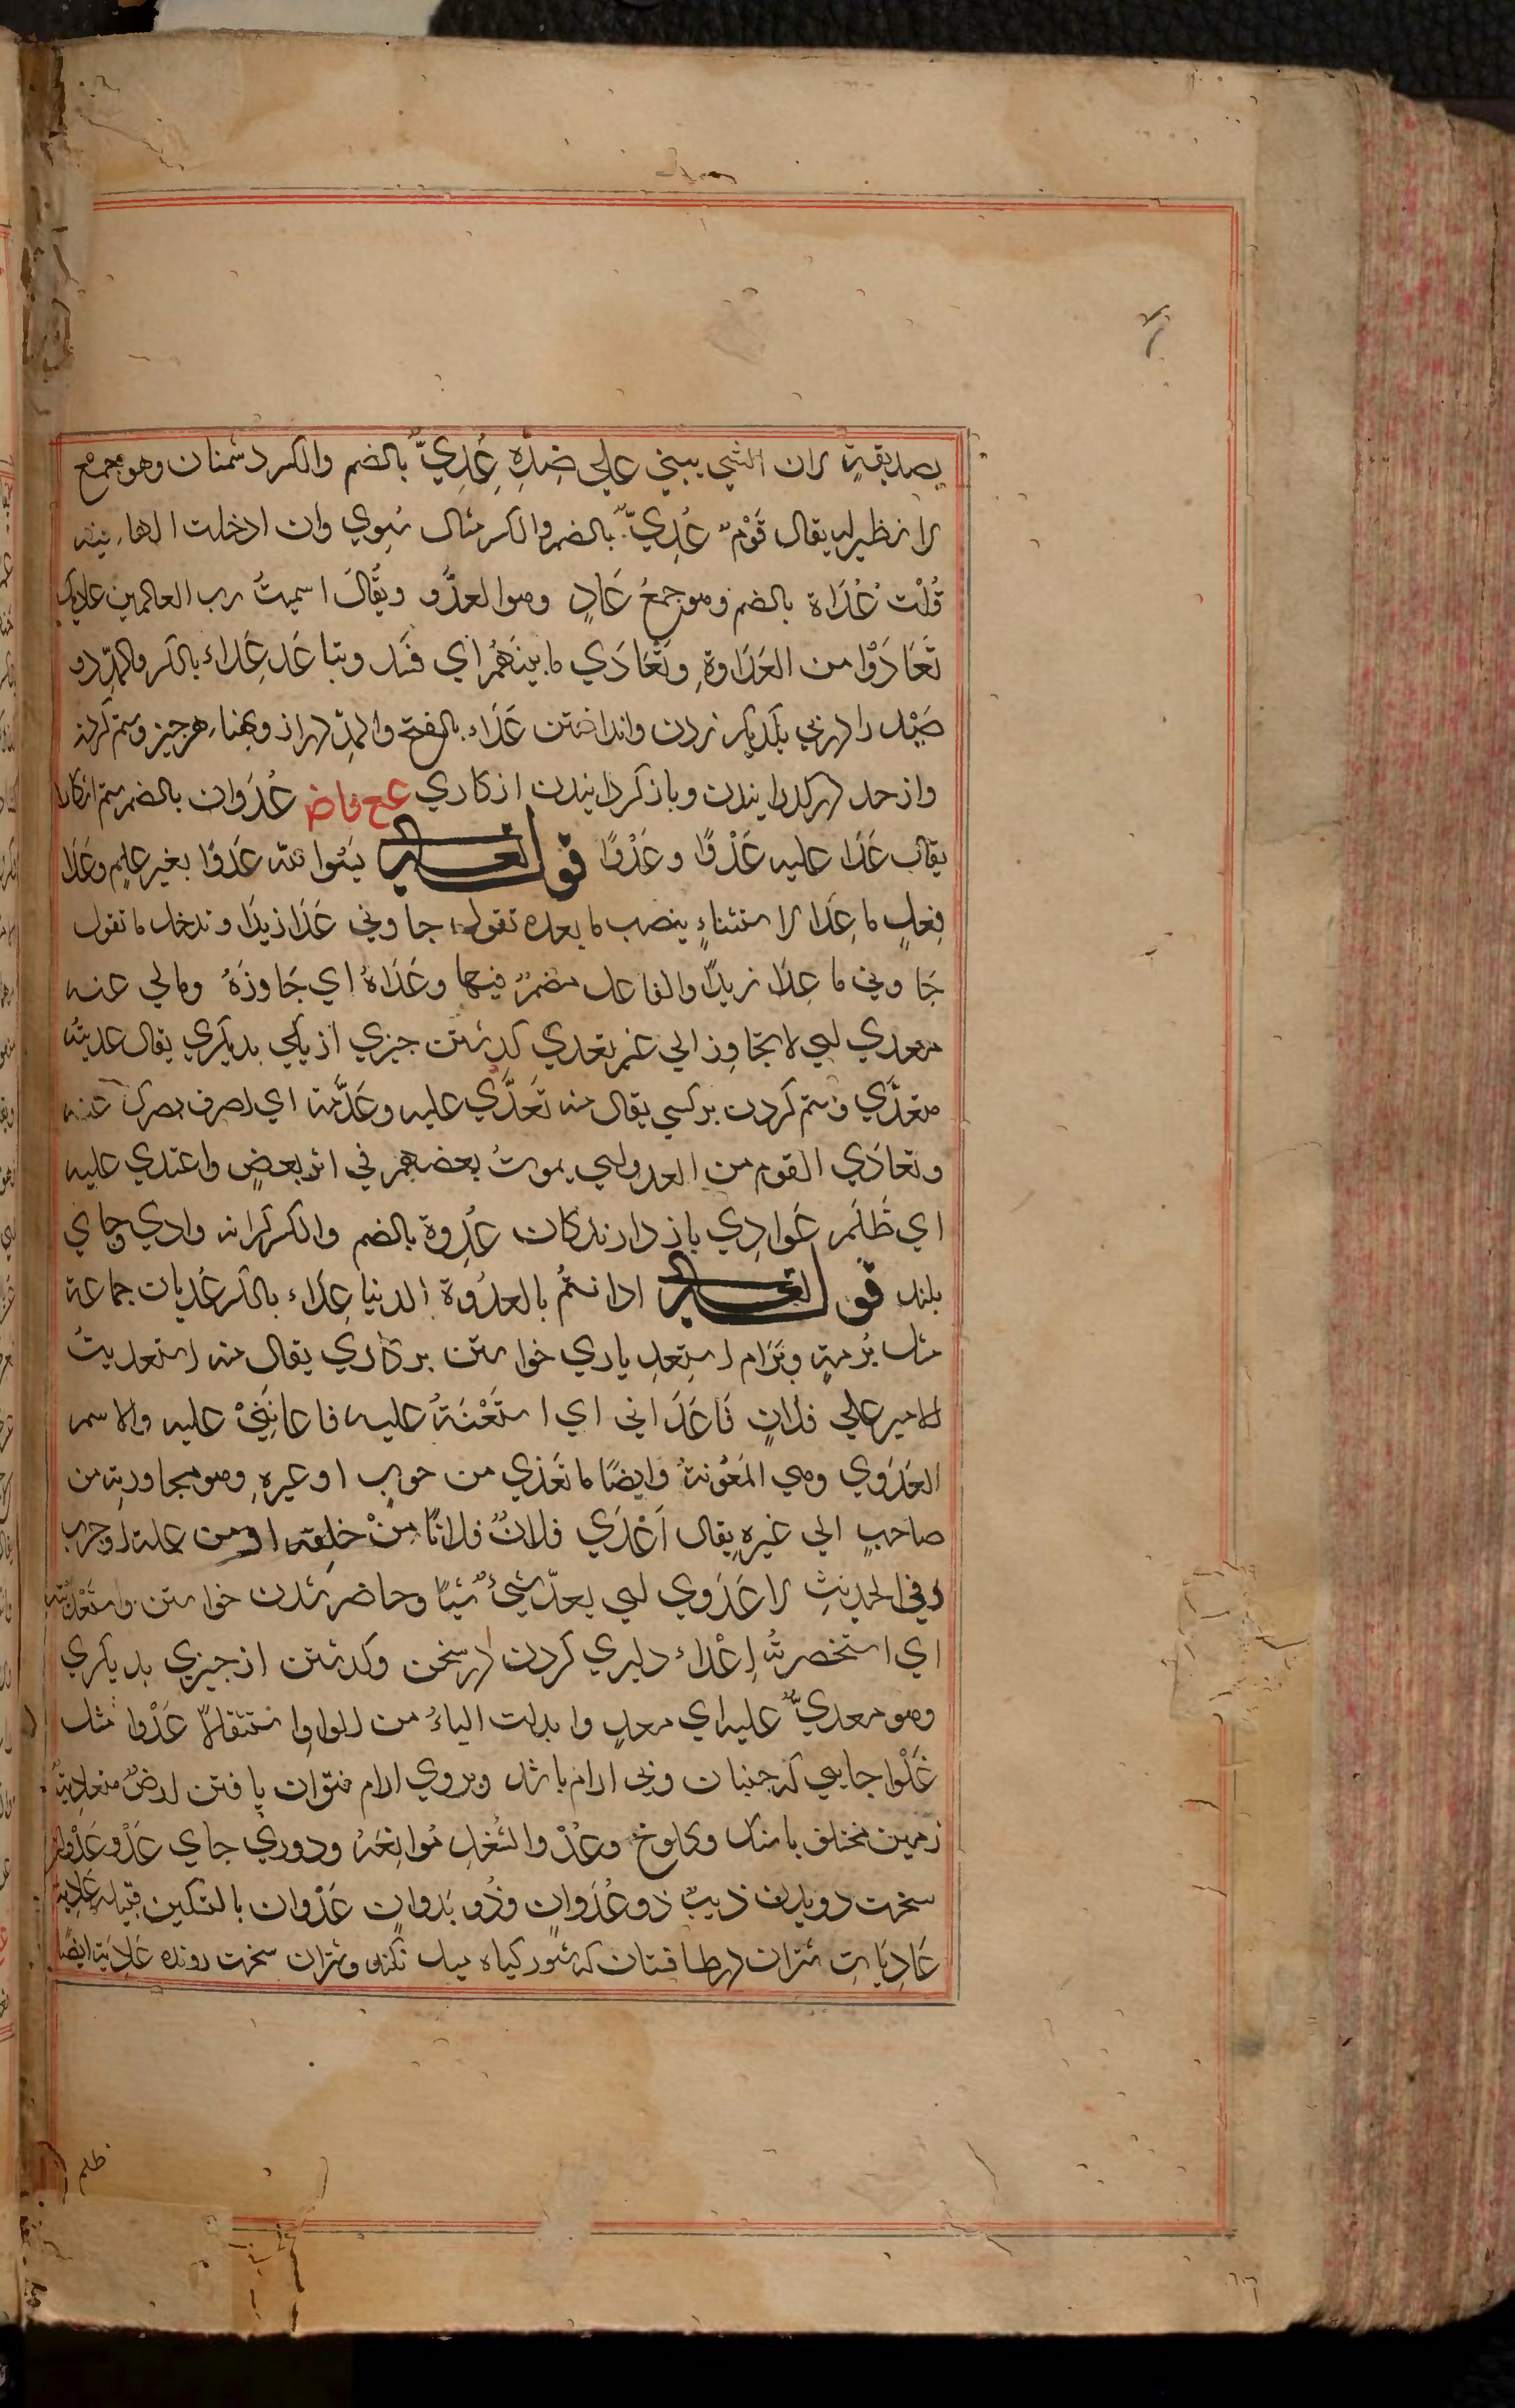 بصديقةٍ لان الشي يبني علي ضِدِّهِ عُِدِيٌّ بالضم والكسر دشمنان وهو جمع
لا نظير له يقال قَوْمٌ عُدِيٌّ بالضم والكسر مثال سُِوي وان ادخلت الهاء فيه
قُلْتَ عُدَاة بالضم وهو جمعُ عَادٍ وهو العدُّو ويُقَالَ اسميتُ رب العالمين عاديك
تَعَادَوْا من العَدَاوةِ وتَعَادَي ما بينَهُمْ اي فَسَد وتباعَد عِدَاء بالكسر والمدّ دو
صَيْد را در پي يكديكر زدن وانداختن عَدَاء بالفتح والمدّ درازا وپهناء هر چيز وستم كردن
واز حد در كذرانيدن وباز كردانيدن از كاري عُدَوان بالضم ستم اشكارا
يقال عَدَا عليه عَدْوًا وعُدُوًا قوله تعالي يَسُبُّوا الله عَدْوًا بغير علمٍ وعَدَا
فِعلٍ ما عَدَا لاستثناءٍ ينصب ما بعده تقول جاوني عَدَا زيدًا وتدخل ما تقول
جَاوني ما عدَا زيدًا والفاعل مضمرٌ فيها وعَدَاهُ اي جَاوزَهُ ومالي عنه
معدي اي لا تجاوز الي غيره تعدي كدشتن چيزي از يكي بديكري يقال عديتُه
متعدَّي وستم كردن بر كسي يقال منه تَعَدَّي عليه وعَدَّيته اي اصرف بصرك عنه
وتعادَي القوم من العدو اي يموتُ بعضهم في اثر بعضٍ واعتدي عليه
اي ظَلَمَ عَوادِي بازدارندكان عُِدوة بالضم والكسر كرانه وادي وجاي
بلند قوله تعالي اذ انتُم بالعدُوة الدنيا عِدَاء بالكسر عُدَيات جماعة
مثل بُرمةٍ وبُرَام استعِد ياري خواستن بر كاري يقال منه استعديتُ
الامير علي فلانٍ فَاعَدَاني اي استَعْنَتُ عليه فاعانَنِيْ عليه والاسم
العَدَوي وهي المَعُونةُ وايضًا ما تعَدي من جربٍ او غيرهِ وهو مجاوزته من
صاحبٍ الي غيرهِ يقال اَعْدَي فلانٌ فلانًا مِنْ خلقه او من علة او جرب
وفي الحديثِ لا عَدَوي اي يعدّ شيءٌ شيًا وحاضر شدن خواستن واستعديته
اي استحضرتُه اِعْدَاء دليري كردن در سخن وكدشتن از چيزي بديكري
وهو معديٌّ عليه اي معدٍ وابدلت الياءُ من الواوِ استثقالاً عَدْوا مثل
غَلْوا جايي كه جنبان وبي ارام باشد وبروي ارام نتوان يافتن ارضٌ متعاديةٌ
زمين مختلف با سنك وكلوخ وعُدَواء الشُغلِ مُوانِعَهُ ودوري جاي عَدْو عَدْواء
سخت دويدن ذيبٌ ذو عُدَوانٍ وذُو بَدوانٍ عَدْوان بالتسكين قبيله عَادِيه
عَادِيَات شتران در طافستان كه شور كياه ميل نكند وشتران سخت رونده عَادِيَة ايضًا
ظلم